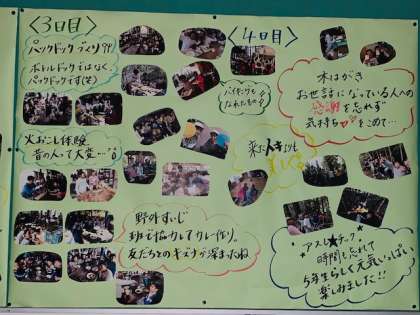 〈3日目〉
パックドックづくり
ボトルドックではなく
パックドックです(笑)
火おこし体験
昔の人って大変…
野外すいじ
班で協力してカレー作り。
友だちとのキズナが深まったね
〈4日目〉
バイキングも
なれたもの!
木はがき
お世話になっている人への
感謝を忘れず
気持ち♡をこめて…
アスレチック
時間も忘れて
5年生らしく元気いっぱい
楽しみました!!